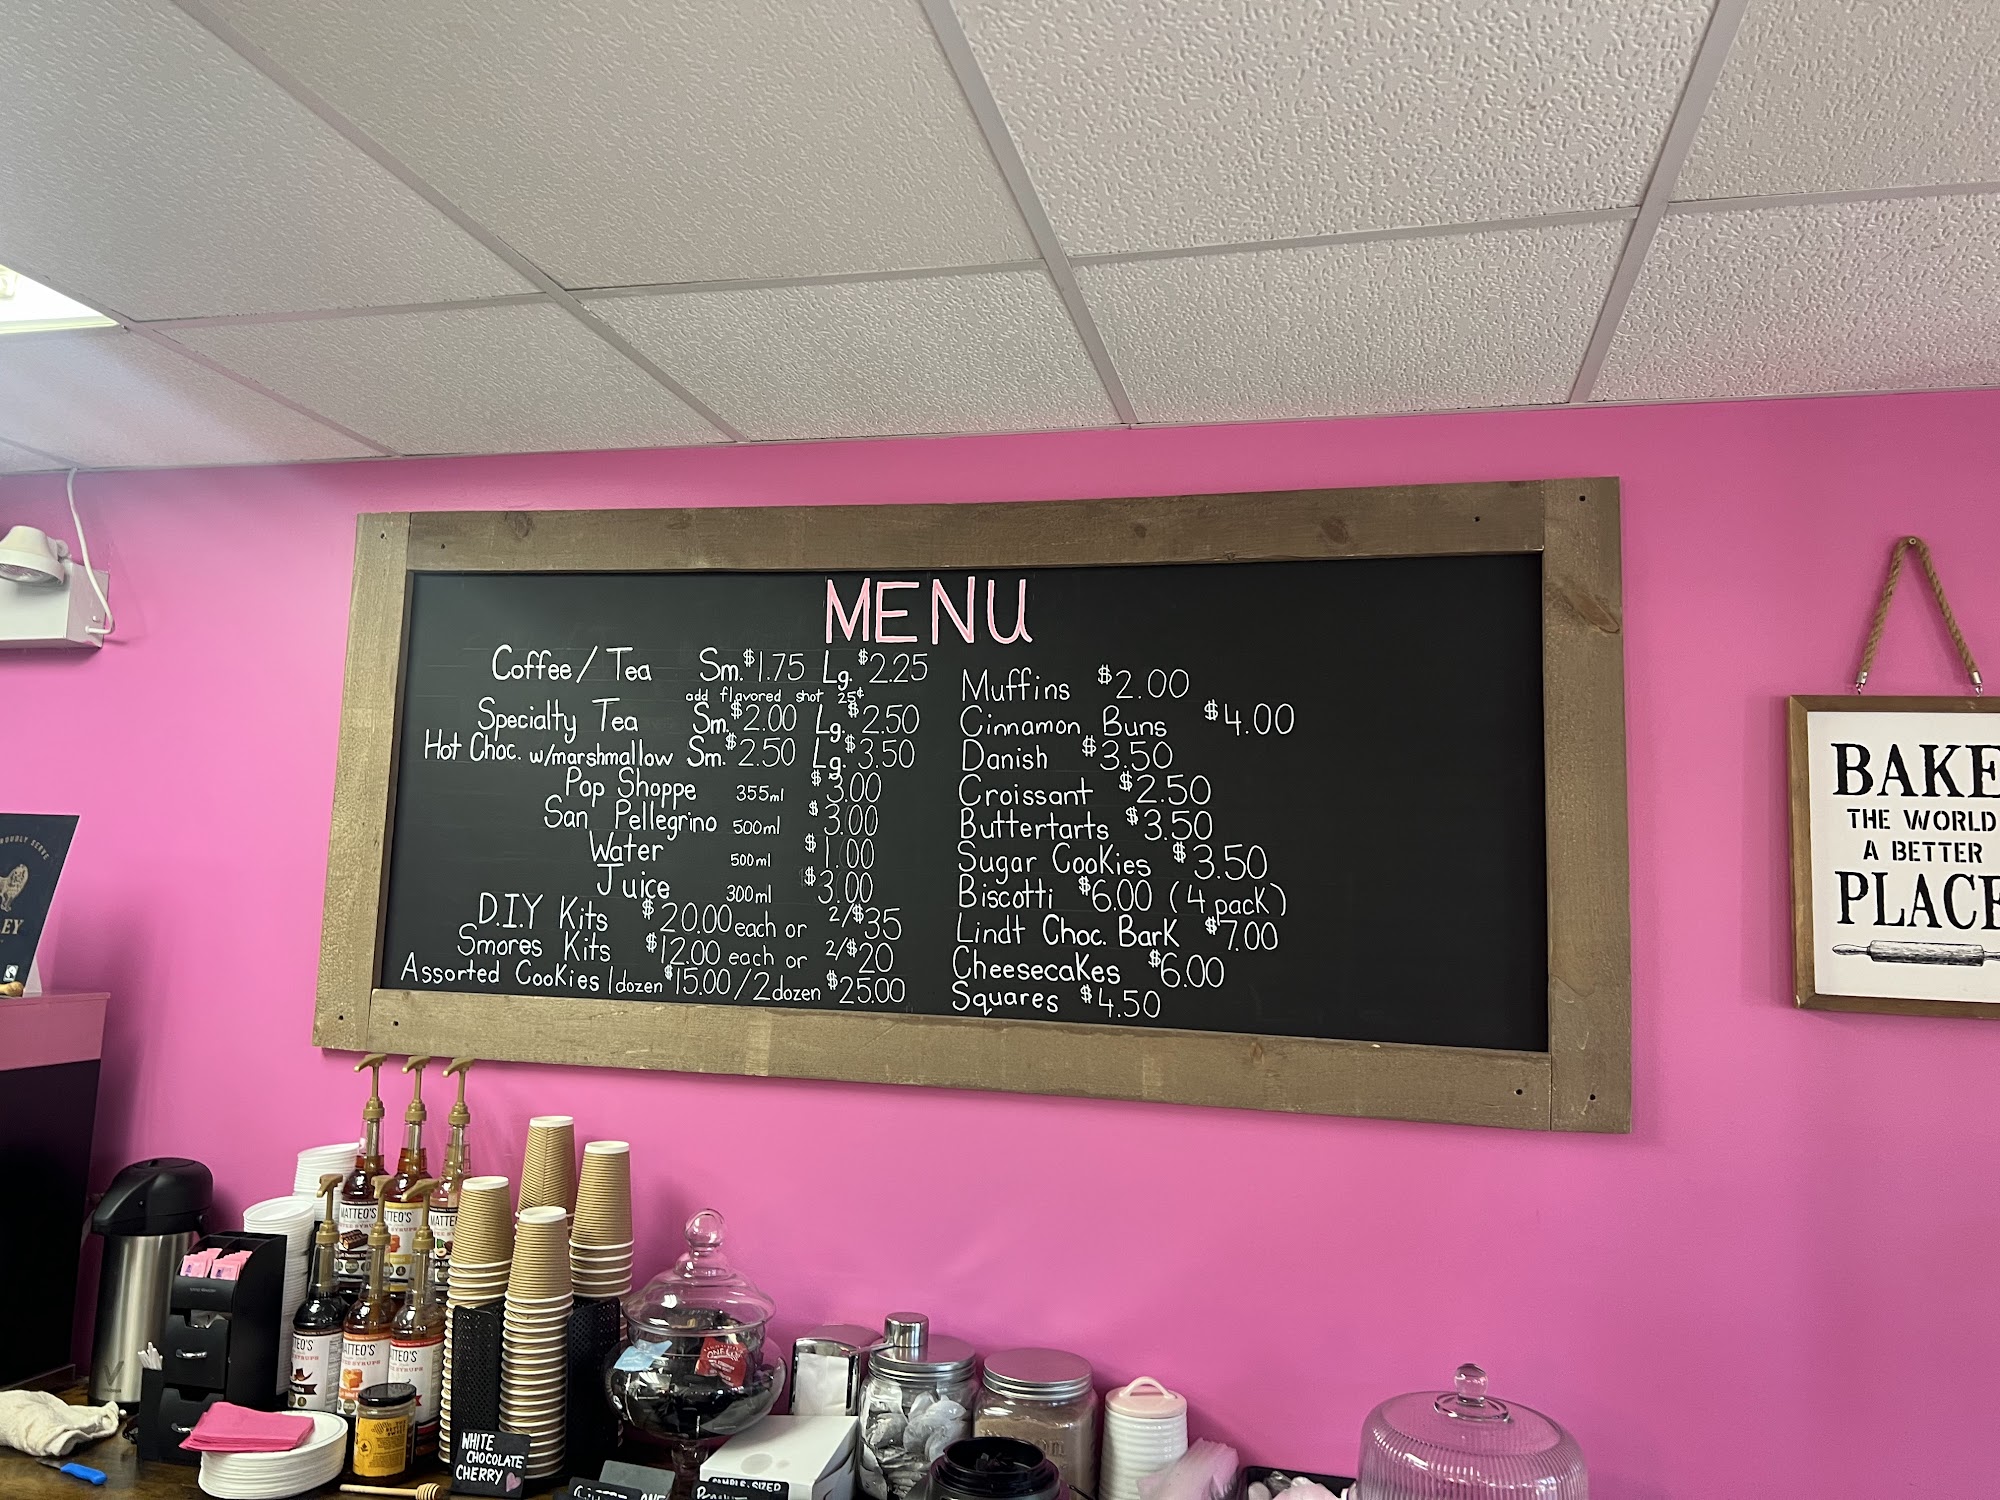 MENU
Coffee / Tea Sm. $1.75 Lg. $2.25
add flavored shot 25¢
Specialty Tea Sm. $2.00 Lg. $2.50
Hot Choc. w/marshmallow Sm. $2.50 Lg. $3.50
Pop Shoppe 355ml $3.00
San Pellegrino 500ml $3.00
Water 500ml $1.00
Juice 300ml $3.00
D.I.Y Kits $20.00 each or 2/$35
Smores Kits $12.00 each or 2/$20
Assorted Cookies 1dozen $15.00 / 2dozen $25.00
Muffins $2.00
Cinnamon Buns $4.00
Danish $3.50
Croissant $2.50
Buttertarts $3.50
Sugar Cookies $3.50
Biscotti $6.00 (4 pack)
Lindt Choc. Bark $7.00
Cheesecakes $6.00
Squares $4.50
BAKE
THE WORLD
A BETTER
PLACE
MATTEO'S
WHITE
CHOCOLATE
CHERRY